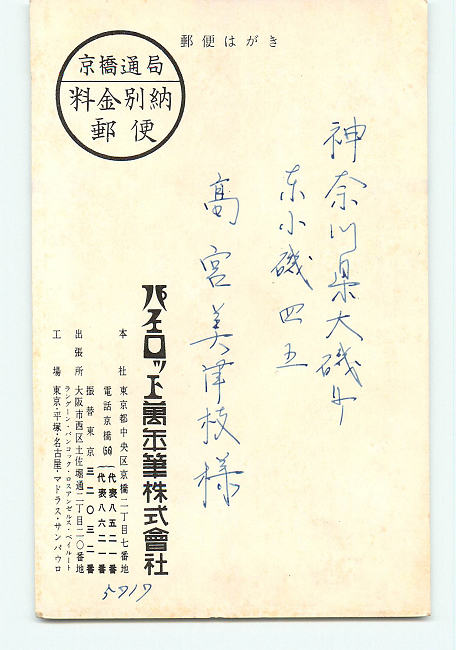 郵便はがき
京橋通局
料金別納
郵便
神奈川県大磯町
東小磯四五
高宮美津枝様
パイロット萬年筆株式會社
本社 東京都中央区京橋二丁目七番地
電話京橋(56)(代表八五二一番
代表八六二一番
振替東京三二〇三二番
出張所 大阪市西区土佐堀通二丁目二〇番地
ラングーン・バンコック・ロスアンゼルス・ベイルート
工場 東京・平塚・名古屋・マドラス・サンパウロ